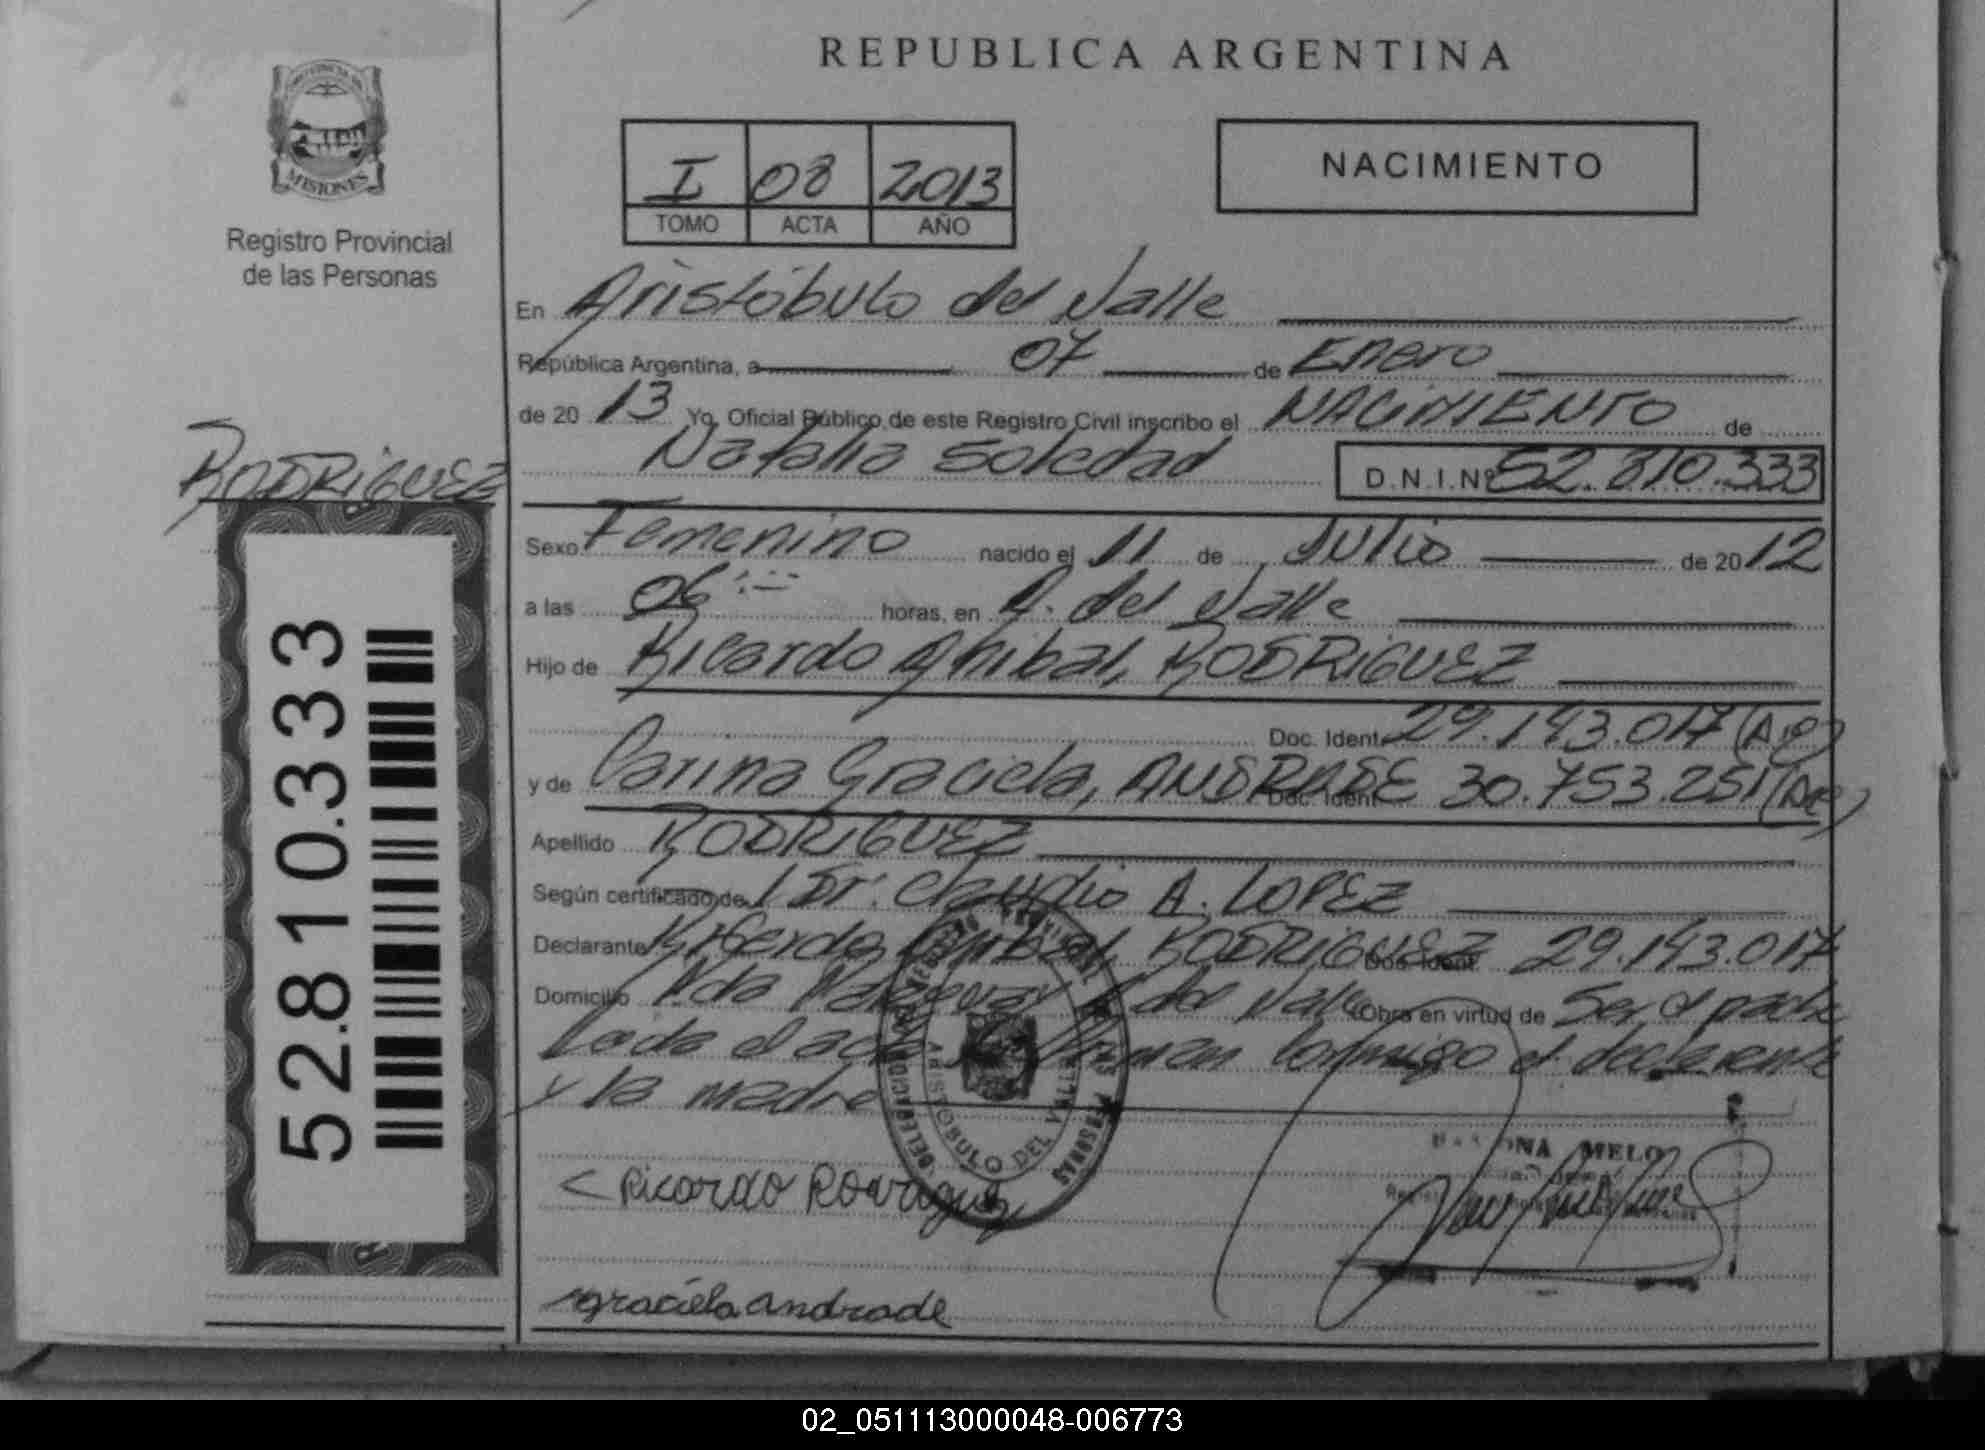 REPUBLICA ARGENTINA
PROVINCIA DE
MISIONES
Registro Provincial
de las Personas
I 08 2013
TOMO ACTA AÑO
NACIMIENTO
En Aristóbulo del Valle
República Argentina, a 07 de Enero
de 20 13 Yo, Oficial Público de este Registro Civil inscribo el NACIMIENTO de
Natalia Soledad D.N.I.Nº 52.810.333
RODRIGUEZ
52.810.333
Sexo Femenino nacido el 11 de Julio de 20 12
a las 06:-- horas, en A. del Valle
Hijo de Ricardo Anibal, RODRIGUEZ
Doc. Ident. 29.143.017 (Arg)
y de Carina Graciela, ANDRADE Doc. Ident. 30.753.251 (Arg)
Apellido RODRIGUEZ
Según certificado de Dr. Claudio A. LOPEZ
Declarante Ricardo Anibal, RODRIGUEZ Doc. Ident. 29.143.017
Domicilio A. del Valle Obra en virtud de Ser el padre
Leida el acta firman conmigo el declarante
y la madre
DELEGACION
ARISTOBULO DEL VALLE
PERSONAS
MELO
< Ricardo Rodriguez
graciela andrade
02_051113000048-006773